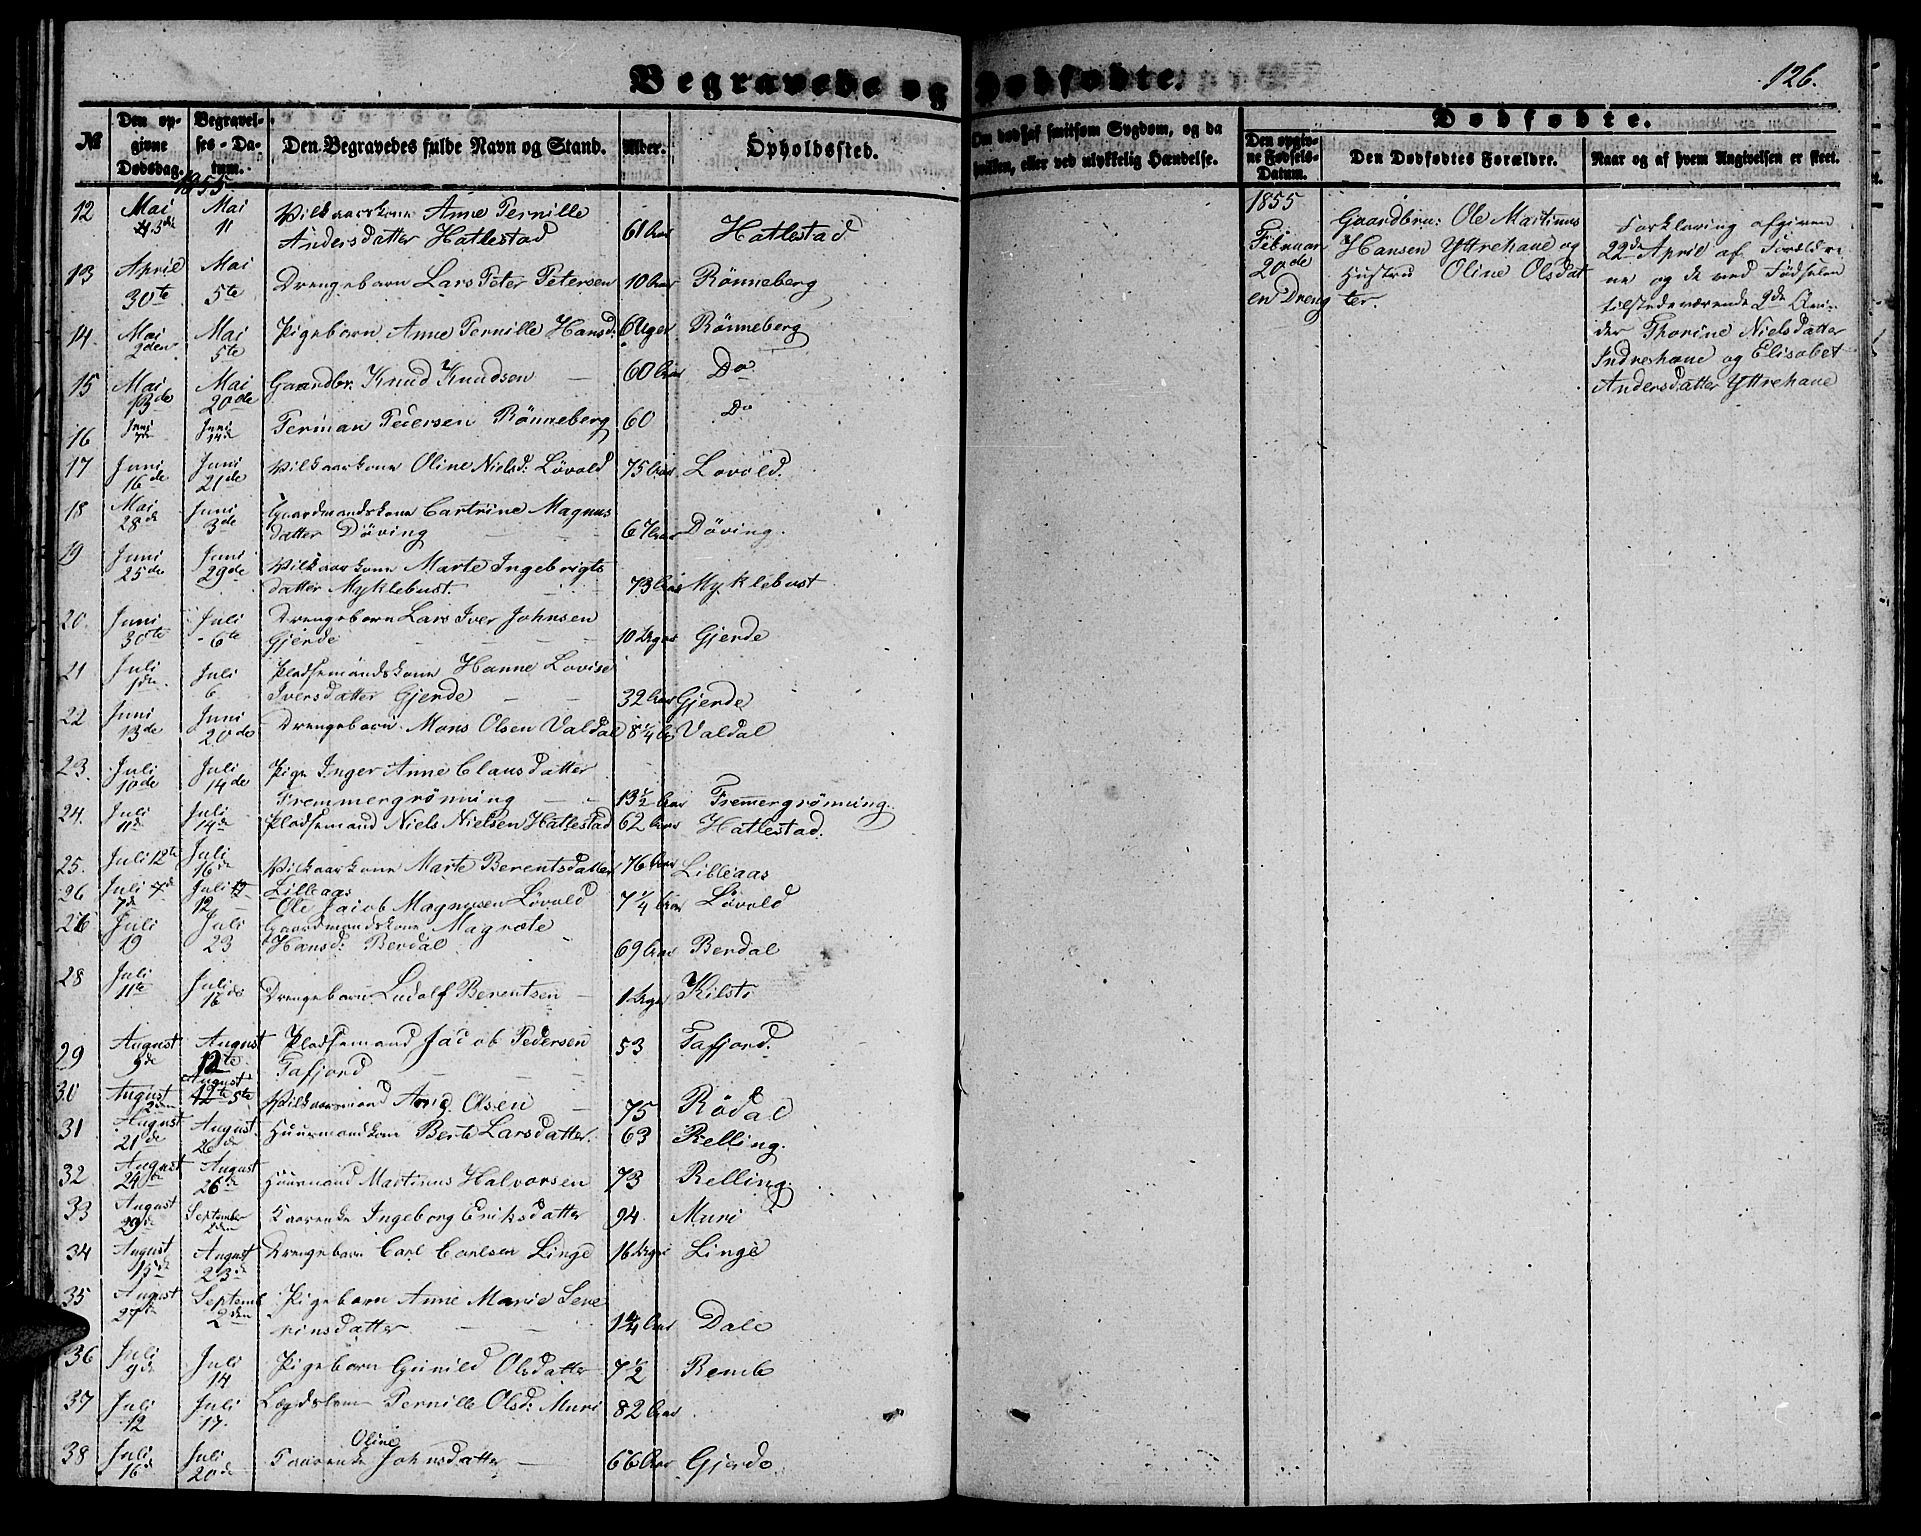 Begravede og Dødfødte.
126.
No
Den opgivne Dødsdag.
Begravelses-Datum.
Den Begravedes fulde Navn og Stand.
Alder.
Opholdssted.
Om død af smitsom Sygdom, og da hvilken, eller ved ulykkelig Hændelse.
Dødfødte.
Den opgivne Fødsels-Datum.
Den Dødfødtes Forældre.
Naar og af hvem Angivelsen er skeet.
1855
12 Mai 5de Mai 11 Vilkaarskone Anne Pernille
Andersdatter Hatlestad 61 Aar Hatlestad
13 April 30te Mai 5te Drengebarn Lars Peter Petersen 10 Aar Rönneberg
14. Mai 2den Mai 5te Pigebarn Anne Pernille Hansd: 6 Uger Rönneberg
15 Mai 13de Mai 20de Gaardbr. Knud Knudsen — 60 Aar Do
16 Juni Juni 14de Perman Pedersen Rönneberg 60 Do
17 Juni 16de Juni 21de Vilkaarskone Oline Nielsd: Lövold 75 Aar Lovold.
18 Mai 28de Juni 3de Gaardmandskone Cartrine Magnus
datter Döving 67 Aar Döving.
19 Juni 25de Juni 29de Vilkaarskone Marte Ingebrigts
datter Myklebust. 73 Aar Myklebust
20. Juni 30te Juli 6te Drengebarn Lars Iver Johnsen
Gjerde 10 Uger Gjerde
21 Juli 1de Juli 6 Pladsemandskone Hanne Lovise
Iversdatter Gjerde 32 Aar Gjerde
22 Juni 13de Juni 20de Drengebarn Mons Olsen Valdal 8 1/4 Valdal
23. Juli 10de Juli 14de Pige Inger Anne Clausdatter
Fremmergrönning 13 1/2 Aar Fremergrönning.
24. Juli 11de Juli 14de Pladsemand Niels Nielsen Hatlestad 62 Aar Hatlestad.
25. Juli 12te Juli 16de Vilkaarskone Marte Berentsdatter 76 Aar Lilleaas
Lilleaas
26 Juli 7de Juli 12 Ole Jacob Magnusen Lövold 7 1/4 Aar Lövold
Juli 19 Juli 23 Gaardmandskone Magrete
Hansd: Berdal 69 Aar Berdal
28 Juli 11te Juli 16de Drengebarn Ludolf Berentsen — 1 Uger Kilsti
29 August August 12te Pladsemand Jacob Pedersen 53 Tafjord.
Tafjord
30 August 2den August 5te Vilkaarsmand Olsen — 75 Rödal
31 August 21de August 26de Huusmandskone Berte Larsdatter. 63 Relling.
32 August 24de August 26de Huusmand Martinus Halvorsen 73 Relling.
33 August 29de September 2den Kaarenke Ingeborg Eriksdatter 94 Muri
34 August 15de August 23de Drengebarn Carl Carlsen Linge 16 Uger Linge
35 August 27de Septemb 2den Pigebarn Anne Marie Seve
rinsdatter 1 1/4 Aar Dale
36 Juli 9de Juli 14 Pigebarn Gunild Olsdatter 7 1/2 Remb
37 Juli 12 Juli 17. Lægdslem Pernille Olsd: Muri 82 Aar
38 Juli 16de Juli 20de Kaarenke Oline Johnsdatter — 66 Aar Gjerde
1855
Februar
20de
en Dreng
Gaardbru: Ole Martinus
Hansen Yttrehane og
Hustru Oline Olsdat
ter.
Forklaring afgiven
22de April af Foreldre
ne og de ved Fødselen
tilstedeværende 2de Qvin
der Thorine Nielsdatter
Indrehane og Elisabet
Andersdatter Yttrehane